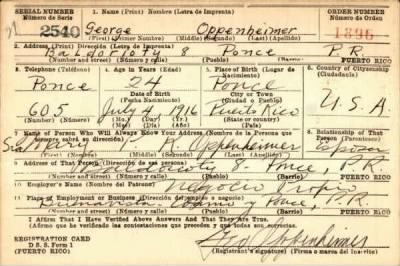 SERIAL NUMBER 1. Name (Print) Nombre (Letra de Imprenta) ORDER NUMBER
Número de Serie Número de Orden
2540 George Oppenheimer 1896
(First) (Primer Nombre) (Middle) (Segundo) (Last) (Apellido)
2. Address (Print) Dirección (Letra de Imprenta)
Baldorioty 8 Ponce P.R.
Number and street) (Número y calle) (Town) (Pueblo) PUERTO RICO
4. Telephone (Teléfono) 4. Age in Years (Edad) 5. Place of Birth (Lugar de Nacimiento) 6. Country of Citizenship (Ciudadanía)
Ponce 24 Ponce
Date of Birth (Fecha Nacimiento) City or Town (Ciudad o Pueblo)
605 July 4 1916 Puerto Rico U.S.A.
(Mo.) (Day) (Yr.) (State or country)
7. Name of Person Who Will Always Know Your Address (Nombre de la Persona que siempre sabrá su dirección) 8. Relationship of That Person (Parentesco)
R. Oppenheimer
(First) (Middle) (Last) (Apellido)
9. Address of That Person (Dirección de esa persona)
8 Ponce, P.R.
Number and street) (Número y calle) (Town) (Pueblo) PUERTO RICO
10. Employer's Name (Nombre del Patrono)
Negocio Propio
11. Place of Employment or Business (Dirección del empleo o negocio)
Buenavista Ponce, P.R.
Number and street) (Número y calle) (Town) (Pueblo) PUERTO RICO
I Affirm That I Have Verified Above Answers and That They Are True.
(Afirmo que he verificado las contestaciones que preceden y que todas son ciertas.)
REGISTRATION CARD
D. S. S. Form 1
(PUERTO RICO)
Geo Oppenheimer
(Registrant's signature) (Firma o marca del inscrito)